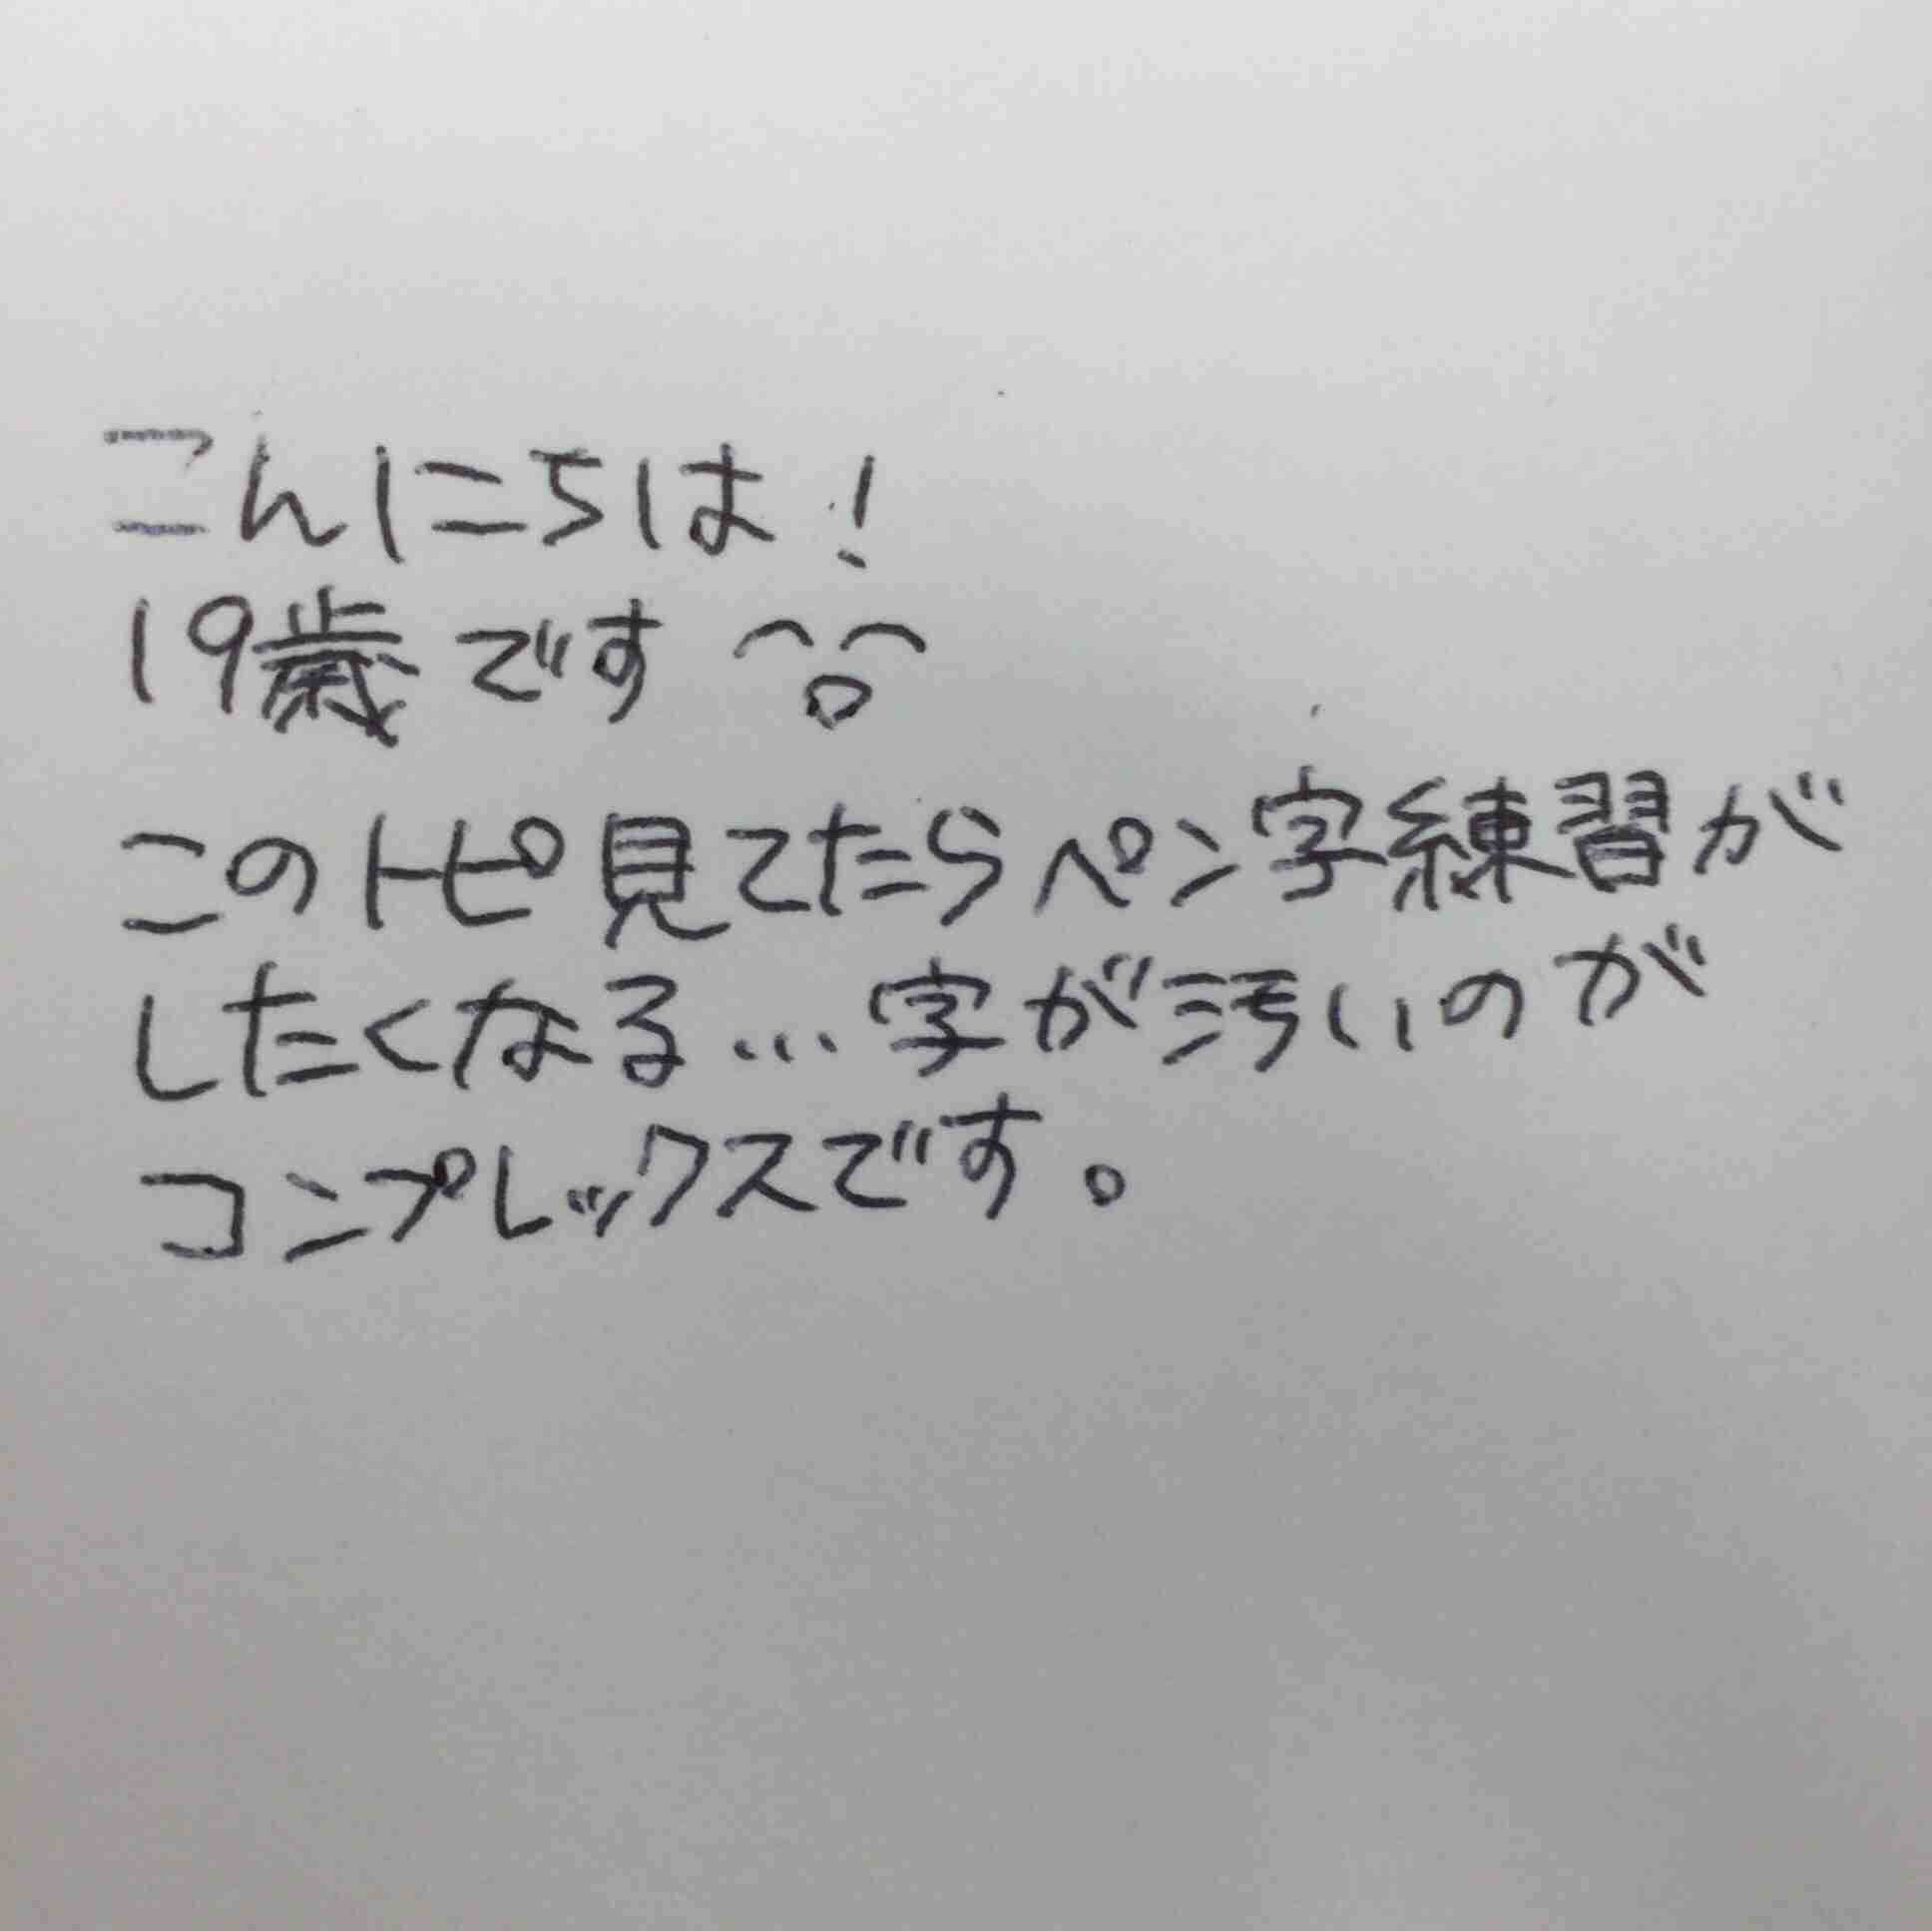 こんにちは!
19歳です
このトピ見てたらペン字練習が
したくなる…字が汚いのが
コンプレックスです。